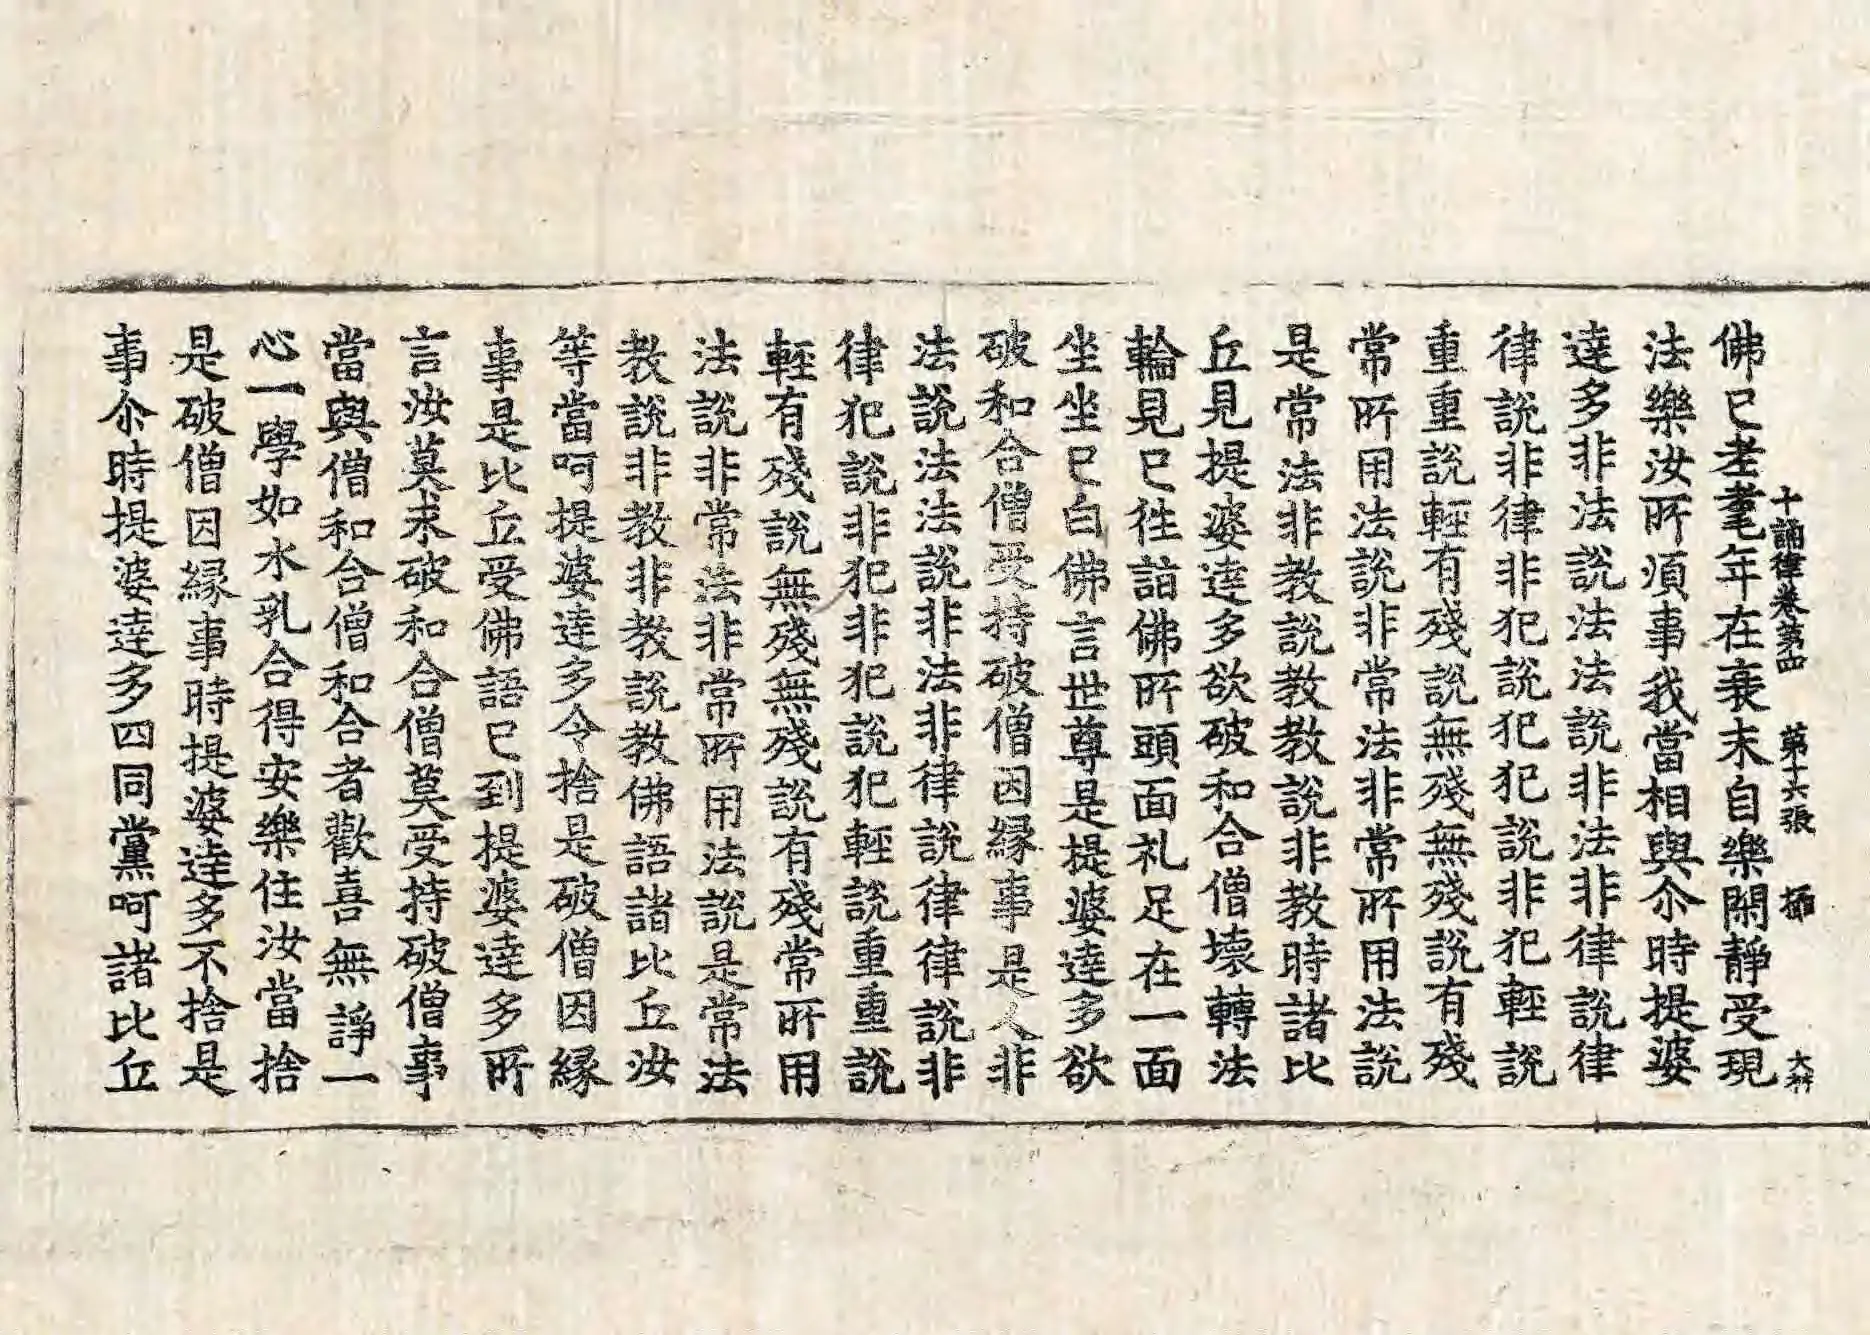 十誦律卷第四　第十六張　㩲　大材
佛已老耄年在衰末自樂閑靜受現
法樂汝所須事我當相與尒時提婆
達多非法說法法說非法非律說律
律說非律非犯說犯犯說非犯輕說
重重說輕有殘說無殘無殘說有殘
常所用法說非常法非常所用法說
是常法非教說教教說非教時諸比
丘見提婆達多欲破和合僧壞轉法
輪見已徃詣佛所頭面礼足在一面
坐坐已白佛言世尊是提婆達多欲
破和合僧受持破僧因縁事是人非
法說法法說非法非律說律律說非
律犯說非犯非犯說犯輕說重重說
輕有殘說無殘無殘說有殘常所用
法說非常法非常所用法說是常法
教說非教非教說教佛語諸比丘汝
等當呵提婆達多令捨是破僧因縁
事是比丘受佛語已到提婆達多所
言汝莫求破和合僧莫受持破僧事
當與僧和合僧和合者歡喜無諍一
心一學如水乳合得安樂住汝當捨
是破僧因縁事時提婆達多不捨是
事尒時提婆達多四同黨呵諸比丘